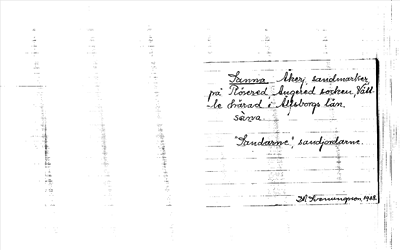 Sanna Åker, sandmarker,
på Rösered, Angered socken, Vätt-
le härad i Älvsborgs län.
sàna
"Sandarne" sandjordarne.
1928.